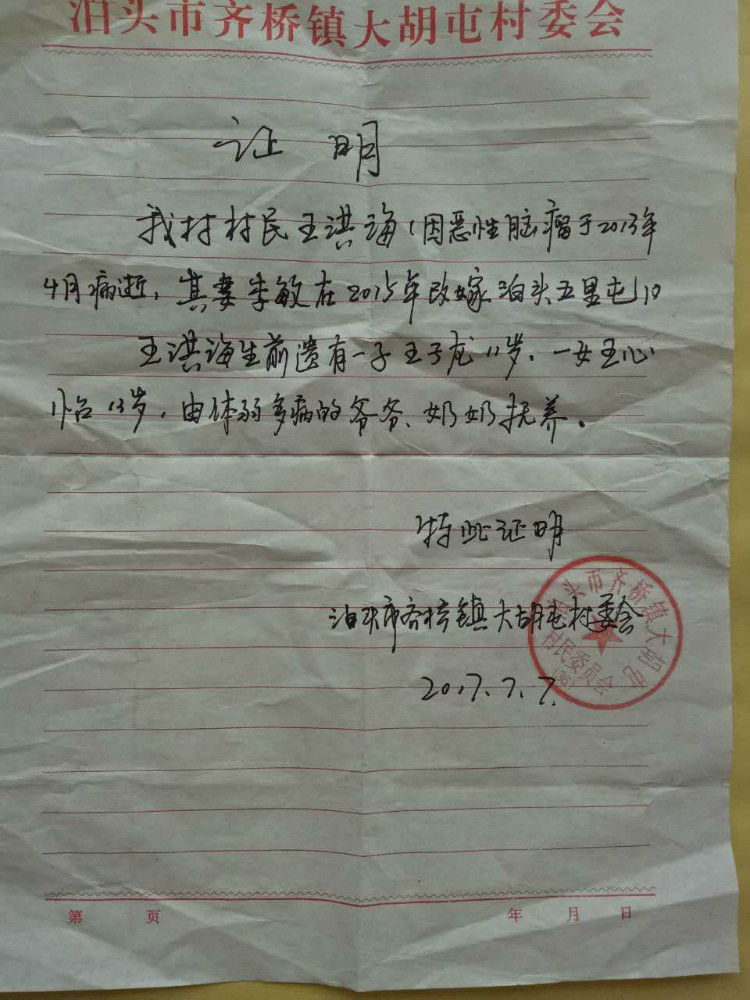 泊头市齐桥镇大胡屯村委会
证明
我村村民王淇海(因恶性脑瘤于2013年
4月病逝,其妻李敏在2015年改嫁泊头五里屯)。
王淇海生前遗有一子王子龙11岁、一女王心
怡13岁,由体弱多病的爷爷、奶奶抚养。
特此证明
泊头市齐桥镇大胡屯村委会
2017.7.7.
泊头市齐桥镇大胡屯
村民委员会
第 页 年 月 日